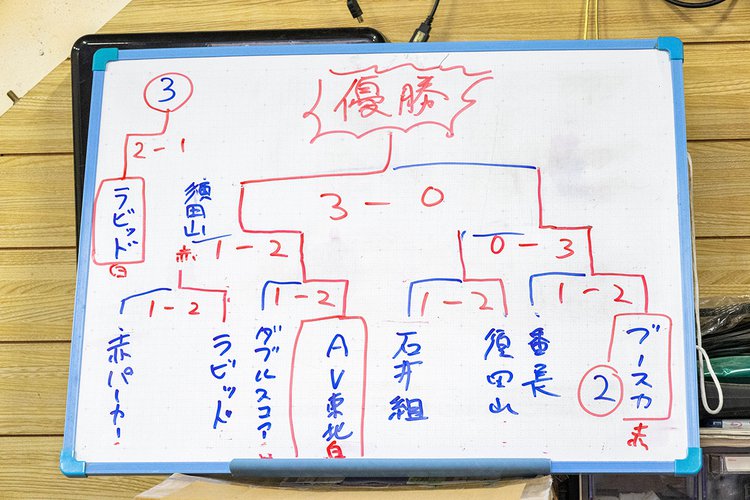 優勝
3
2-1
ラビッド
白
須田山
赤
3-0
1-2
0-3
1-2
1-2
1-2
1-2
赤パーカー
ラビッド
ダブルスコア
AV東北
白
石井組
須田山
番長
ブースカ
赤
2